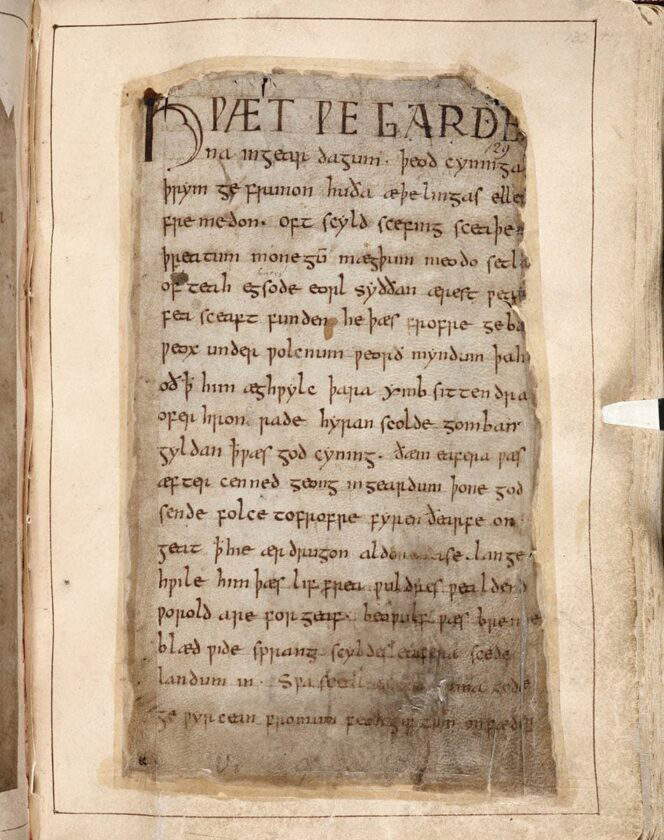 HǷÆT ǷE GARDE
na ingear dagum. þeod cyninga
þrym ge frunon huða æþelingas elle
fre medon. oft scyld scefing sceaþe
þreatum monegū mægþum meodo setla
of teah egsode eorl syððan ærest ƿear
fea sceaft funden he þæs frofre geba
ƿeox under ƿolcnum ƿeorð myndum þah
oð ꝥ him æghƿylc þara ymb sittendra
ofer hron rade hyran scolde gomban
gyldan ꝥ ƿæs god cyning. ðæm eafera ƿæs
æfter cenned geong in geardum þone god
sende folce tofrofre fyren ðearfe on
geat ꝥ hie ær drugon lange
hƿile him þæs lif frea ƿuldres ƿealdend
ƿorold are for geaf. beoƿulf ƿæs breme
blæd ƿide sprang scyldes eafera scede
landum in. Sƿa gode
ge ƿyrcean fromum feoh giftum on fæder